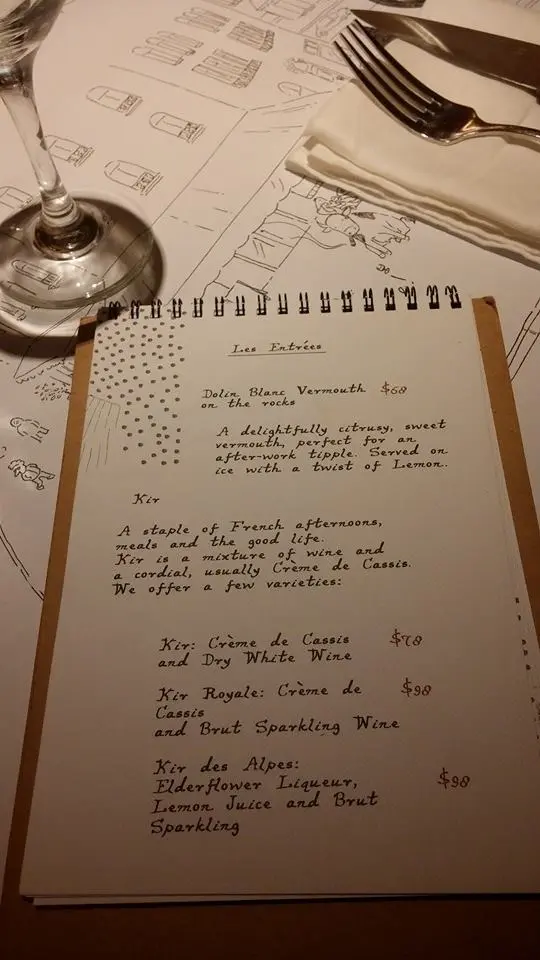 Les Entrées
Dolin Blanc Vermouth $68
on the rocks
A delightfully citrusy, sweet
vermouth, perfect for an
after-work tipple. Served on
ice with a twist of Lemon.
Kir
A staple of French afternoons,
meals and the good life.
Kir is a mixture of wine and
a cordial, usually Crème de Cassis.
We offer a few varieties:
Kir: Crème de Cassis $78
and Dry White Wine
Kir Royale: Crème de $98
Cassis
and Brut Sparkling Wine
Kir des Alpes:
Elderflower Liqueur, $98
Lemon Juice and Brut
Sparkling